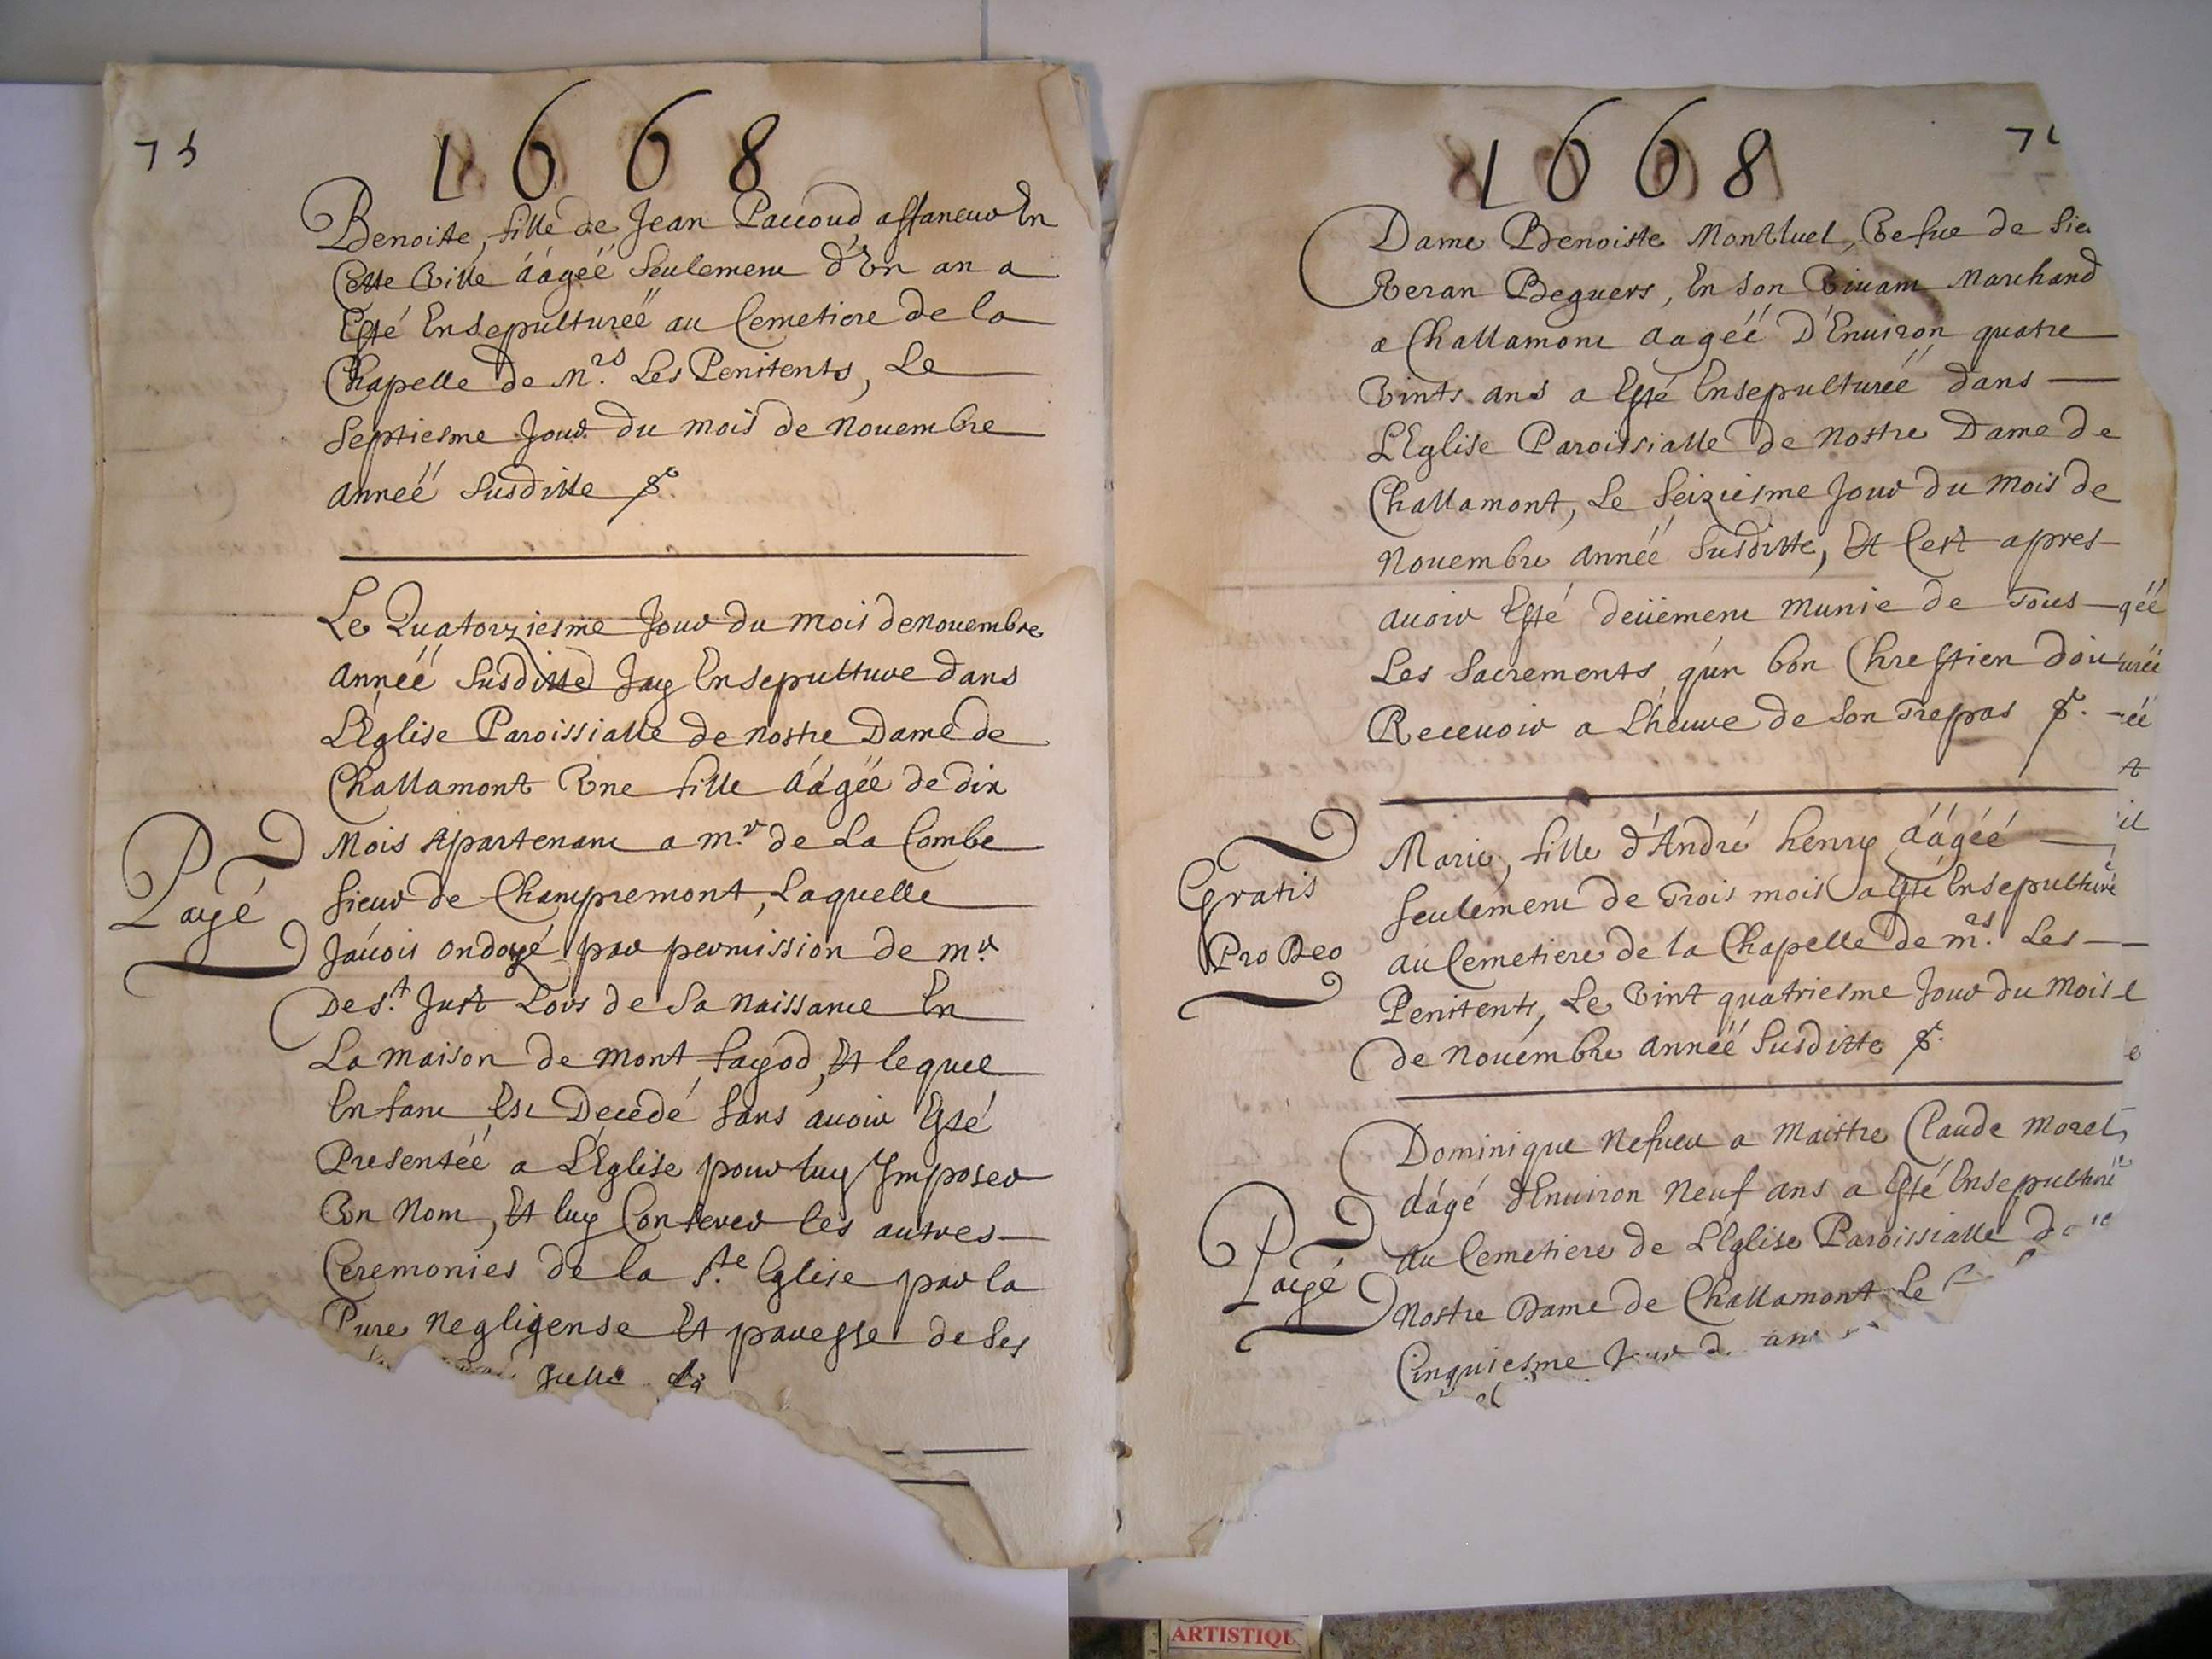 75
1668
Benoite, fille de Jean Paccoud, affaneur En
Cette Ville áágéé Seulement d'Vn an a
Esté Ensepulturéé au Cemetiere de la
Chapelle de M.rs Les Penitents, Le
Septiesme Jour du mois de Nouembre
Annéé Susditte
Le Quatorziesme Jour du mois de Nouembre
Annéé Susditte Jay Ensepulture dans
L'Eglise Paroissialle de Nostre Dame de
Challamont Vne fille áágéé de dix
Mois Apartenant a m.r de La Combe
Sieur de Champremont, Laquelle
Payé
J'auois ondoyé par permission de m.r
De S.t Just Lors de Sa Naissance En
La maison de Mont fayod, Et lequel
Enfant Est Decedé Sans auoir Esté
Presentéé a L'Eglise pour luy Imposer
Vn Nom, Et luy Conferer les autres
Ceremonies de la S.te Eglise par la
Pure Negligense Et paresse de Ses
1668
Dame Benoiste Montluel, Vefue de Sie
Veran Beguers, En Son Viuant Marchand
a Challamont aagéé D'Enuiron quatre
Vints ans a Esté Ensepulturéé dans
L'Eglise Paroissialle de Nostre Dame de
Challamont, Le Seiziesme Jour du Mois de
Nouembre Annéé Susditte, Et Cest apres
auoir Esté deüement munie de Tous
Les Sacrements qu'n bon Chrestien doit
Receuoir a L'heure de Son Trepas
Marie, fille d'André henry áágéé
Seulement de Trois mois a Esté Ensepulturé
Gratis
Pro Deo
au Cemetiere de la Chapelle de m.rs Les
Penitents, Le Vint quatriesme Jour du Mois
de Nouembre Annéé Susditte
Dominique Nefueu a Maistre Claude Morel,
áágé d'Enuiron Neuf ans a Esté Ensepulturé
Payé
Au Cemetiere de L'Eglise Paroissialle de
Nostre Dame de Challamont Le
Cinquiesme Jour d
ARTISTIQU